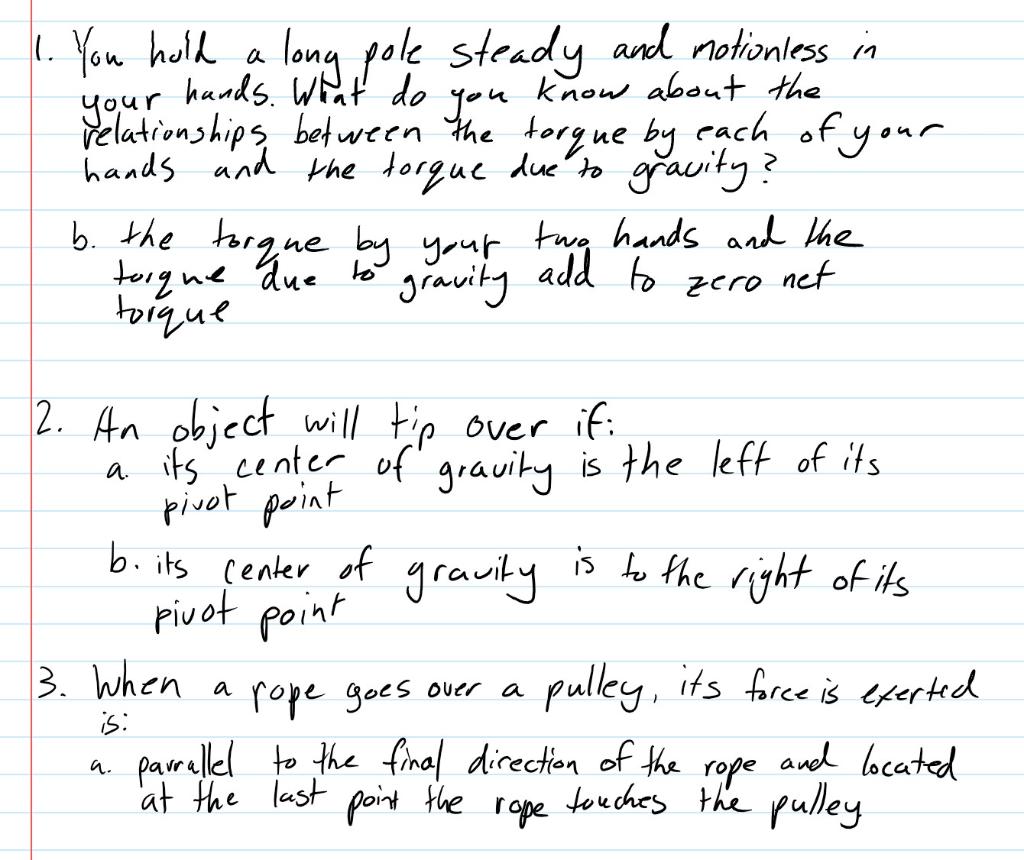 1. You hold a long pole steady and motionless in
your hands. What do you know about the
relationships between the torque by each of your
hands and the torque due to gravity?
b. the torque by your two hands and the
torque due to gravity add to zero net
torque
2. An object will tip over if:
a. its center of gravity is the left of its
pivot point
b. its center of gravity is to the right of its
pivot point
3. When a rope goes over a pulley, its force is exerted
is:
a. parrallel to the final direction of the rope and located
at the last point the rope touches the pulley